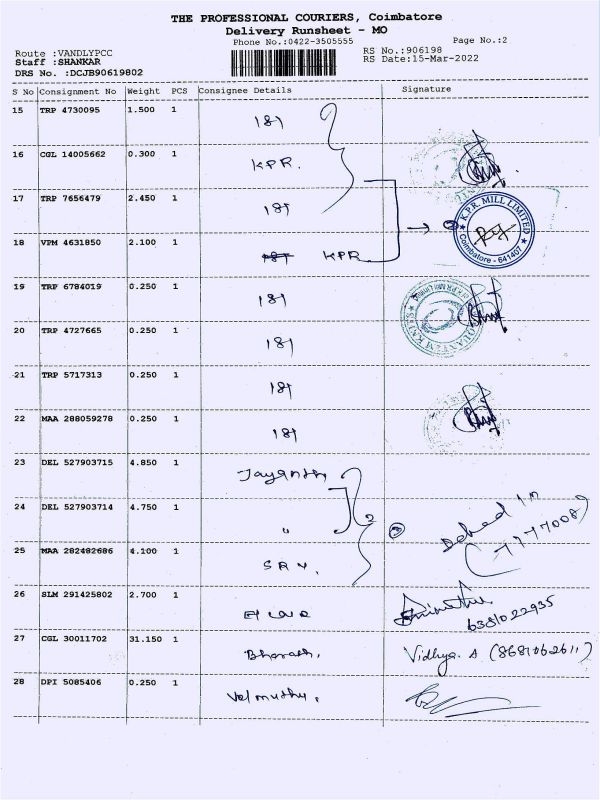 THE PROFESSIONAL COURIERS, Coimbatore
Delivery Runsheet - MO
Phone No.:0422-3505555 Page No.:2
Route :VANDLYPCC RS No.:906198
Staff :SHANKAR RS Date:15-Mar-2022
DRS No. :DCJB90619802
S No Consignment No Weight PCS Consignee Details Signature
15 TRP 4730095 1.500 1 18†
16 CGL 14005662 0.300 1 KPR.
17 TRP 7656479 2.450 1 18†
K.P.R. MILL LIMITED
Coimbatore - 641407
18 VPM 4631850 2.100 1 KPR
19 TRP 6784019 0.250 1 18†
20 TRP 4727665 0.250 1 18†
21 TRP 5717313 0.250 1 18†
22 MAA 288059278 0.250 1 18†
23 DEL 527903715 4.850 1 Jayanth
24 DEL 527903714 4.750 1 " 2
25 MAA 282482686 4.100 1
26 SLM 291425802 2.700 1 6381022935
27 CGL 30011702 31.150 1 Bharath, Vidhya. A (8681062611)
28 DPI 5085406 0.250 1 Velmuthu,